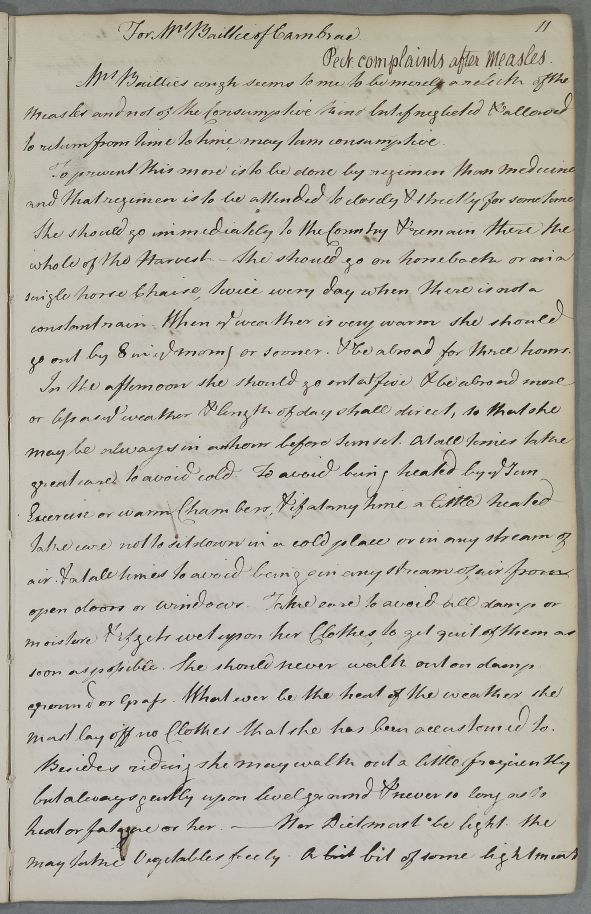 11
For Mrs Baillie of Carnbrae
Pect complaints after Measles.
Mrs Baillies cough seems to me to be merely a relict of the
Measles and not of the Consumptive kind but if neglected & allowed
to return from time to time may turn consumptive.
To prevent this more is to be done by regimen than medicine
and that regimen is to be attended to closely & strictly for some time
She should go immediately to the Country & remain there the
whole of the Harvest – She should go on horseback or in a
single horse Chaise, twice every day when there is not a
constant rain. When ye weather is very warm she should
go out by 8 in ye morng or sooner. & be abroad for three hours.
In the afternoon she should go out at five & be abroad more
or less as ye weather & length of day shall direct, so that she
may be always in an hour before Sunset. At all times take
great care to avoid cold To avoid being heated by ye Sun
Exercise or warm Chambers, & if at any time a little heated
take care not to sit down in a cold place or in any stream of
air & at all times to avoid being in any stream of air from
open doors or windows. Take care to avoid all damp or
moisture & if gets wet upon her Clothes to get quit of them as
soon as possible. She should never walk out on damp
ground or Grass. Whatever be the heat of the weather she
must lay off no Clothes that she has been accustomed to.
Besides riding she may walk out a little frequently
but always gently upon level ground & never so long as to
heat or fatigue or her. — Her Diet must be light. She
may take Vegetables freely. A bit bit of some light meat